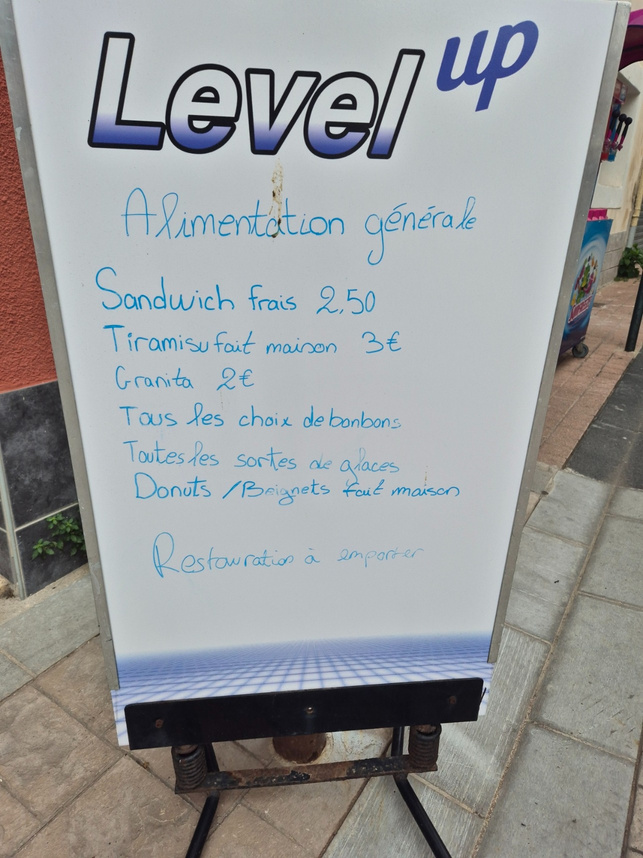 Level up
Alimentation générale
Sandwich frais 2,50
Tiramisu fait maison 3€
Granita 2€
Tous les choix de bonbons
Toutes les sortes de glaces
Donuts / Beignets fait maison
Restauration à emporter